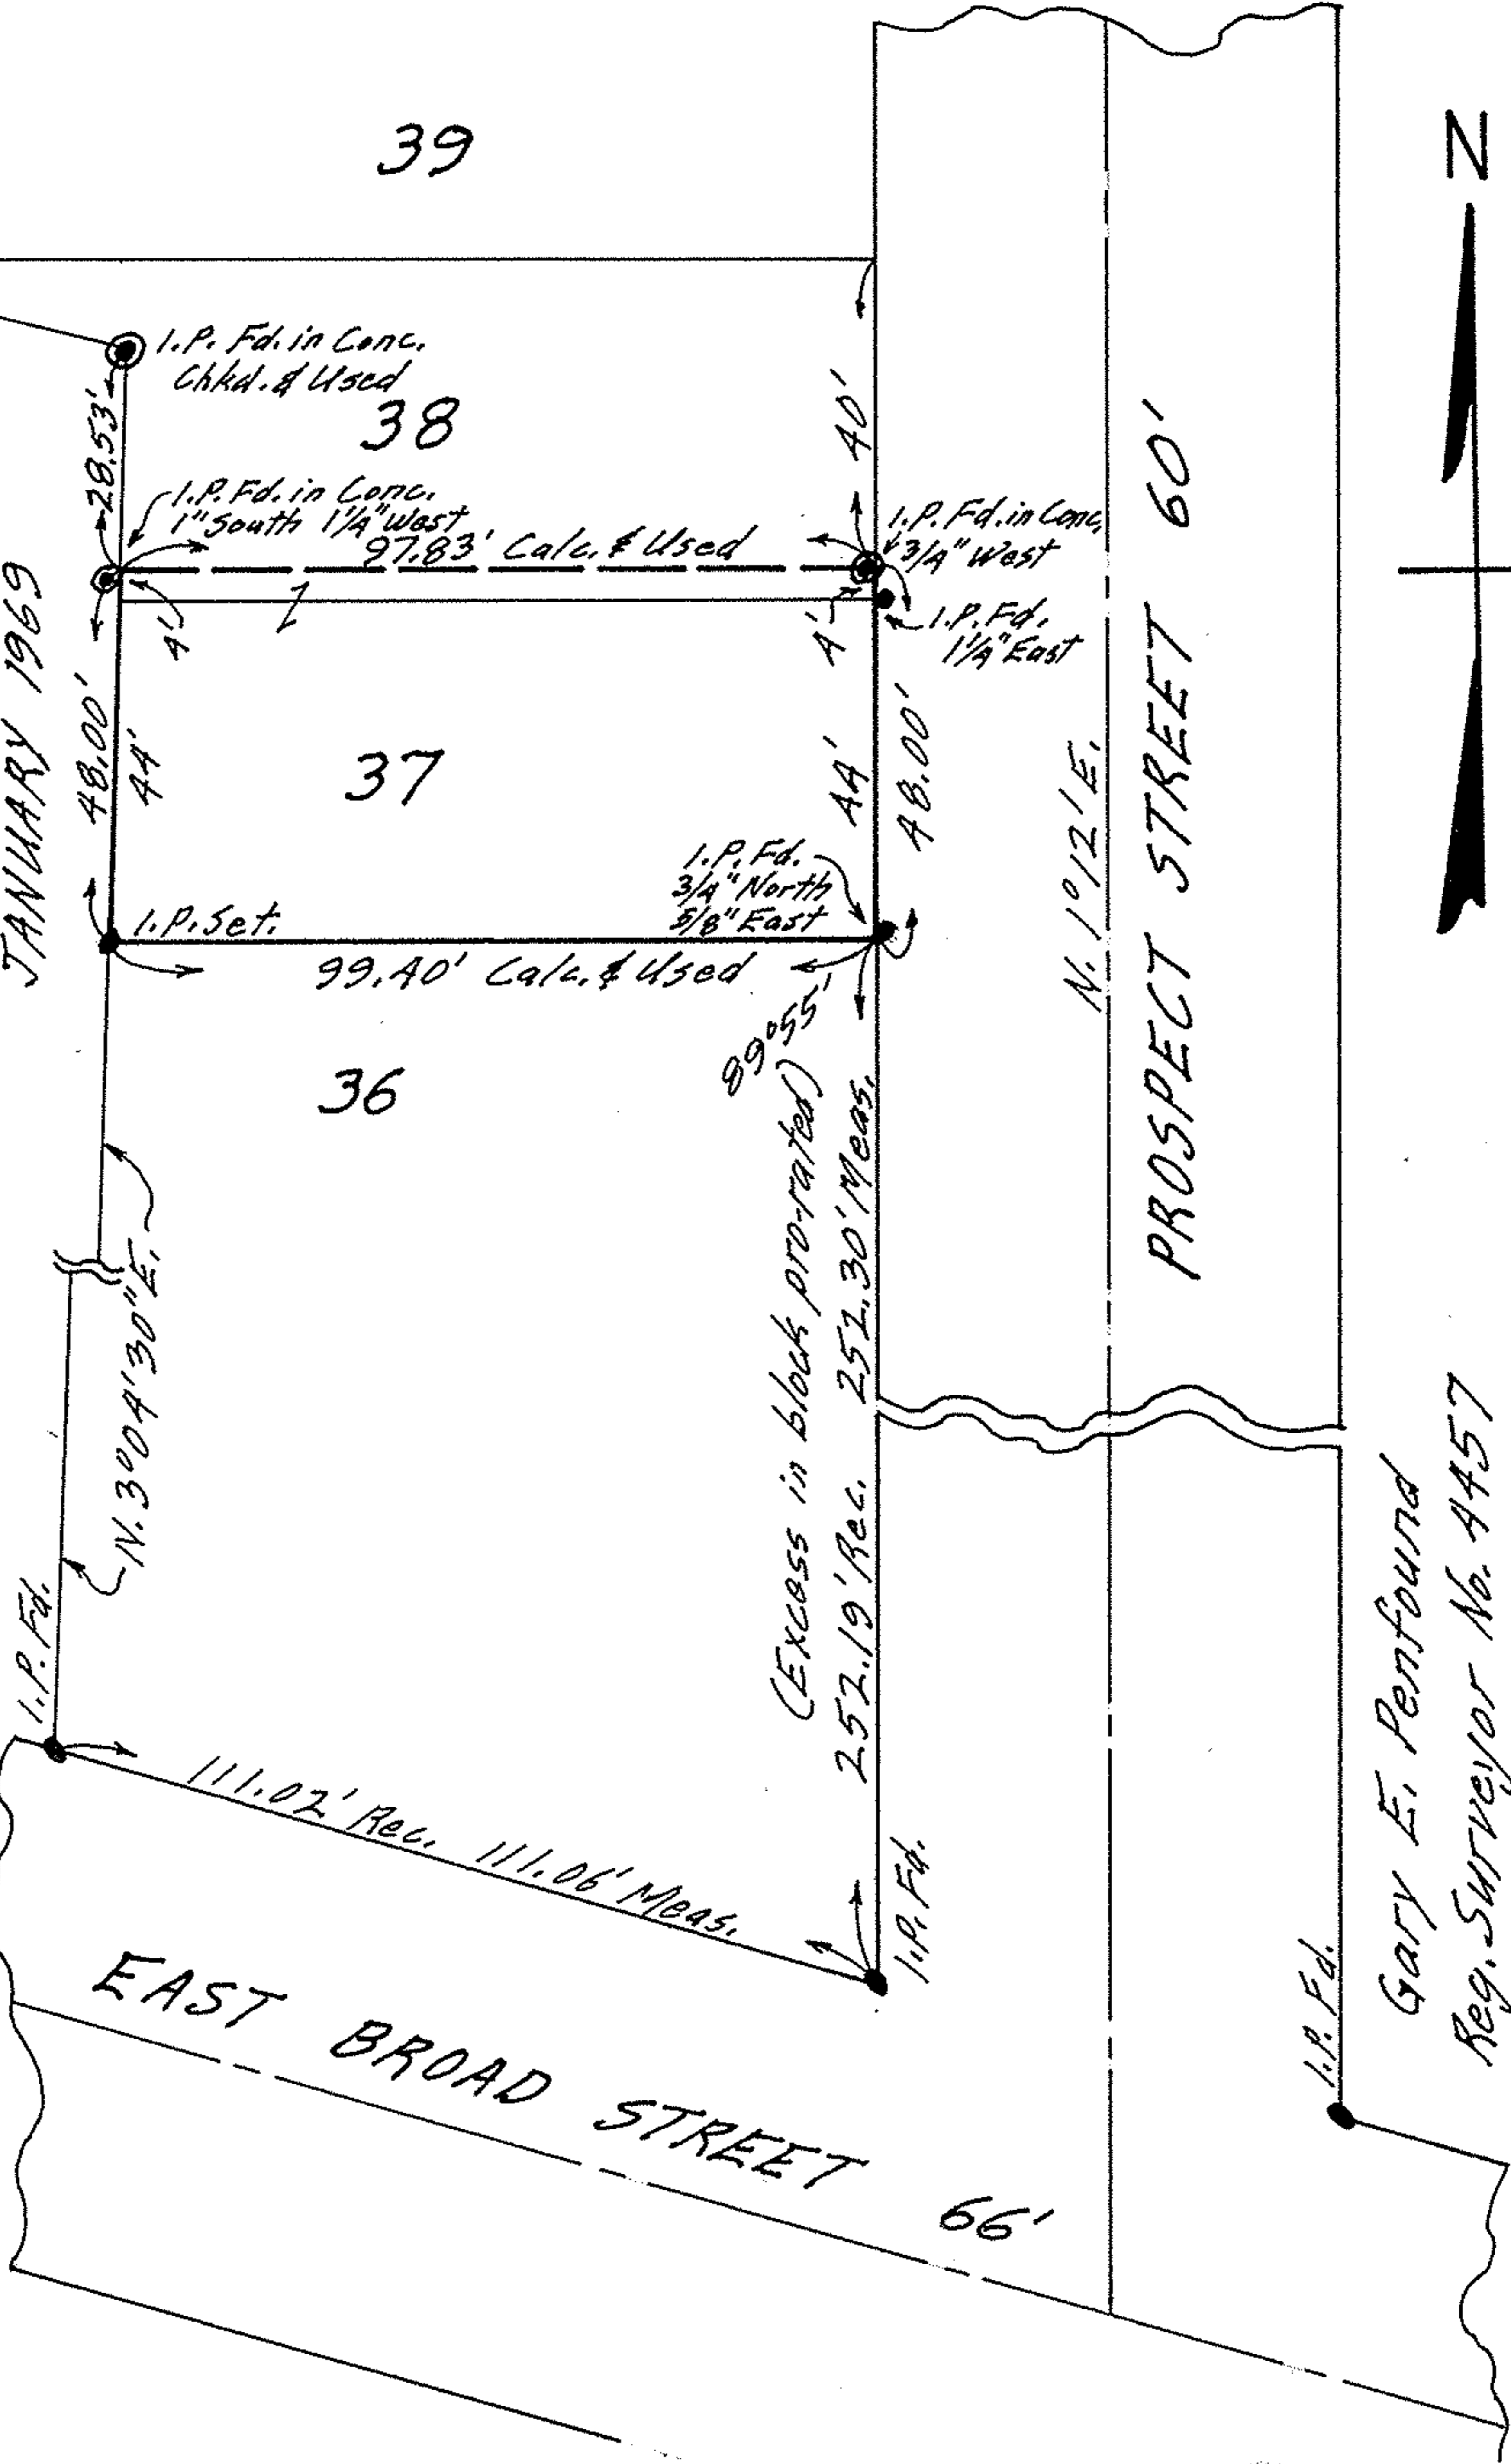 N
39
I.P. Fd. in Conc.
Chkd. & Used
28.53'
38
40'
I.P. Fd. in Conc.
1" South 1 1/4" West
97.83' Calc. & Used
I.P. Fd. in Conc.
3/4" West
4'
4'
I.P. Fd.
1 1/4" East
JANUARY 1969
48.00'
44'
37
44'
48.00'
I.P. Fd.
3/4" North
5/8" East
I.P. Set.
99.40' Calc. & Used
89°55'
36
N. 1°12' E.
PROSPECT STREET 60'
N. 3°04'30" E.
(Excess in block pro-rated)
252.19' Rec. 252.30' Meas.
I.P. Fd.
111.02' Rec. 111.06' Meas.
I.P. Fd.
I.P. Fd.
EAST BROAD STREET 66'
Gary E. Penfound
Reg. Surveyor No. 4457